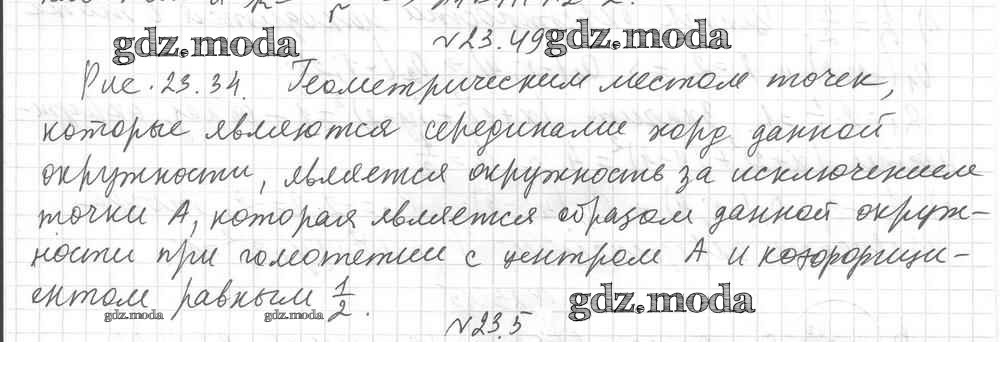 №23.49
gdz.moda gdz.moda
Рис. 23.34. Геометрическим местом точек,
которые являются серединами хорд данной
окружности, является окружность за исключением
точки А, которая является образом данной окруж-
ности при гомотетии с центром А и коэффици-
ентом равным 1/2.
gdz.moda gdz.moda gdz.moda
№23.5